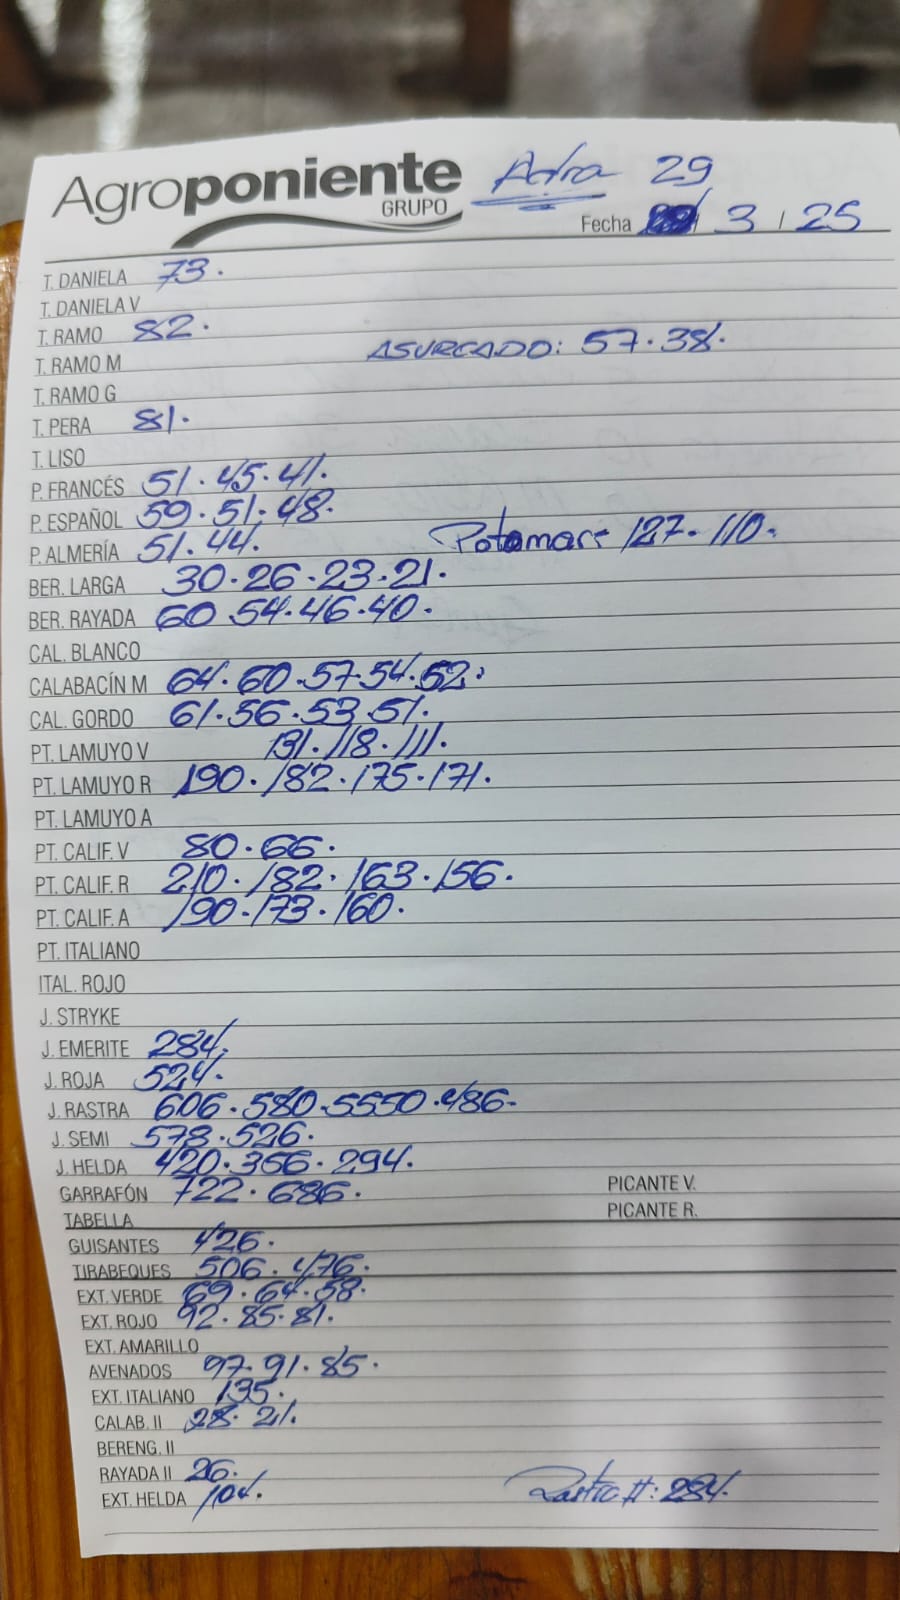 Agroponiente Adra 29
GRUPO
Fecha 3 / 25
T. DANELA 73.
T. DANIELA V
T. RAMO 82.
T. RAMO M ASURCADO: 57.38.
T. RAMO G
T. PERA 81.
T. LISO
P. FRANCÉS 51.45.41.
P. ESPAÑOL 59.51.48.
P. ALMERÍA 51.44. Potamar 127.110.
BER. LARGA 30.26.23.21.
BER. RAYADA 60.54.46.40.
CAL. BLANCO
CALABACÍN M 64.60.57.54.52.
CAL. GORDO 61.56.53.51.
PT. LAMUYO V 131.118.111.
PT. LAMUYO R 190.182.175.171.
PT. LAMUYO A
PT. CALIF. V 80.66.
PT. CALIF. R 210.182.163.156.
PT. CALIF. A 190.173.160.
PT. ITALIANO
ITAL. ROJO
J. STRYKE
J. EMERITE 284.
J. ROJA 524.
J. RASTRA 606.580.5550.486.
J. SEMI 578.526.
J. HELDA 420.356.294.
GARRAFÓN 722.686. PICANTE V.
TABELLA PICANTE R.
GUISANTES 426.
TIRABEQUES 506.476.
EXT. VERDE 69.64.58.
EXT. ROJO 92.85.81.
EXT. AMARILLO
AVENADOS 97.91.85.
EXT. ITALIANO 135.
CALAB. II 28.21.
BERENG. II
RAYADA II 26.
EXT. HELDA 104. 284.